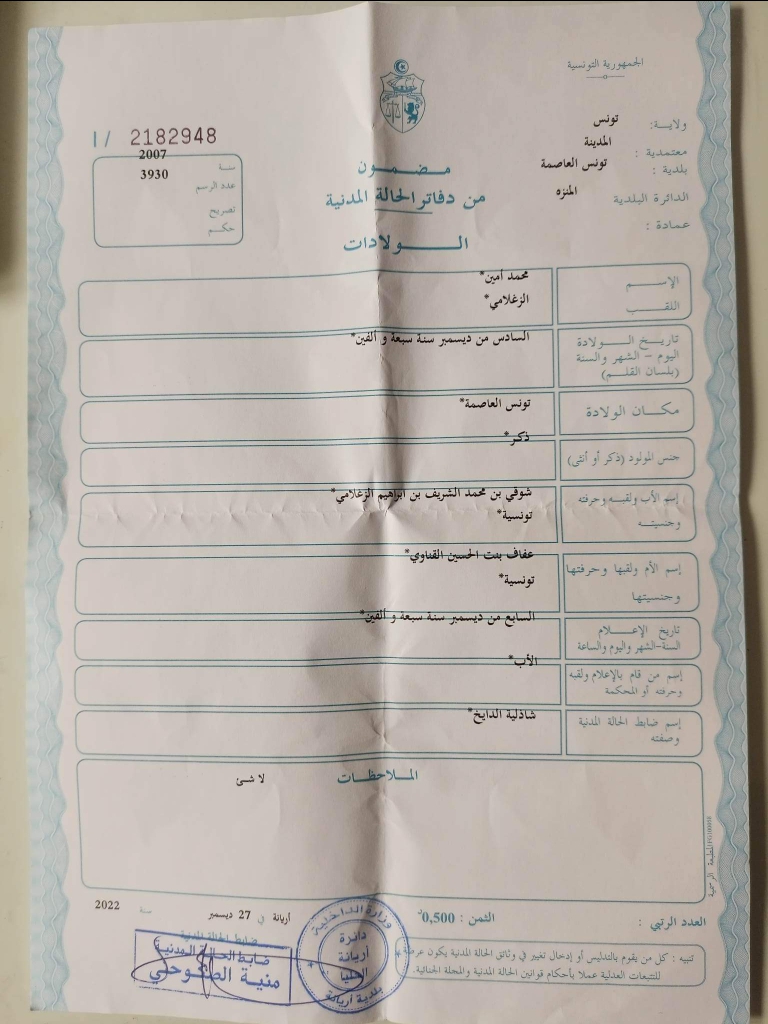 الجمهورية التونسية
ولاية: تونس
معتمدية : المدينة
بلدية : تونس العاصمة
الدائرة البلدية المنزه
عمادة :
I/ 2182948
سنة 2007
عدد الرسم 3930
تصريح
حكم
مضمون
من دفاتر الحالة المدنية
الولادات
الإسم محمد أمين*
اللقب الزغلامي*
تاريخ الولادة السادس من ديسمبر سنة سبعة و ألفين*
اليوم - الشهر والسنة
(بلسان القلم)
مكان الولادة تونس العاصمة*
جنس المولود (ذكر أو أنثى) ذكر*
إسم الأب ولقبه وحرفته شوقي بن محمد الشريف بن ابراهيم الزغلامي*
وجنسيته تونسية*
إسم الأم ولقبها وحرفتها عفاف بنت الحسين القناوي*
وجنسيتها تونسية*
تاريخ الإعلام السابع من ديسمبر سنة سبعة و ألفين*
السنة-الشهر واليوم والساعة
إسم من قام بالإعلام ولقبه الأب*
وحرفته أو المحكمة
إسم ضابط الحالة المدنية شاذلية الدايخ*
وصفته
الملاحظات
لا شئ
المطبعة الرسمية
العدد الرتبي : الثمن : 0,500د
أريانة في 27 ديسمبر سنة 2022
ضابط الحالة المدنية
ضابط الحالة المدنية
منية الصكوحلي
وزارة الداخلية
دائرة
أريانة
العليا
بلدية أريانة
تنبيه : كل من يقوم بالتدليس أو إدخال تغيير في وثائق الحالة المدنية يكون عرضة
للتتبعات العدلية عملا بأحكام قوانين الحالة المدنية والمجلة الجنائية.